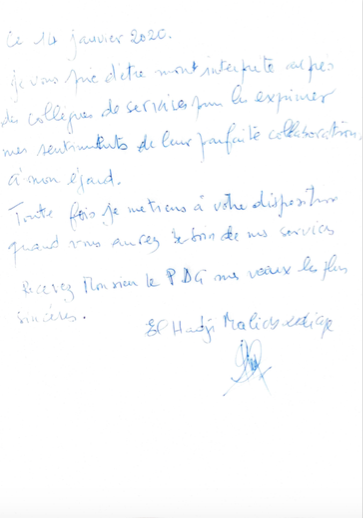 Ce 14 janvier 2020.
Je vous prie d'être mont interprete auprès
des collègues de services pour les exprimer
mes sentiments de leur parfaite collaboration
à mon égard.
Toute fois je metrens à votre disposition
quand vous aurez besoin de mes services
Recevez Monsieur le PDG mes veaux les plus
sincères.
El Hadji Malick